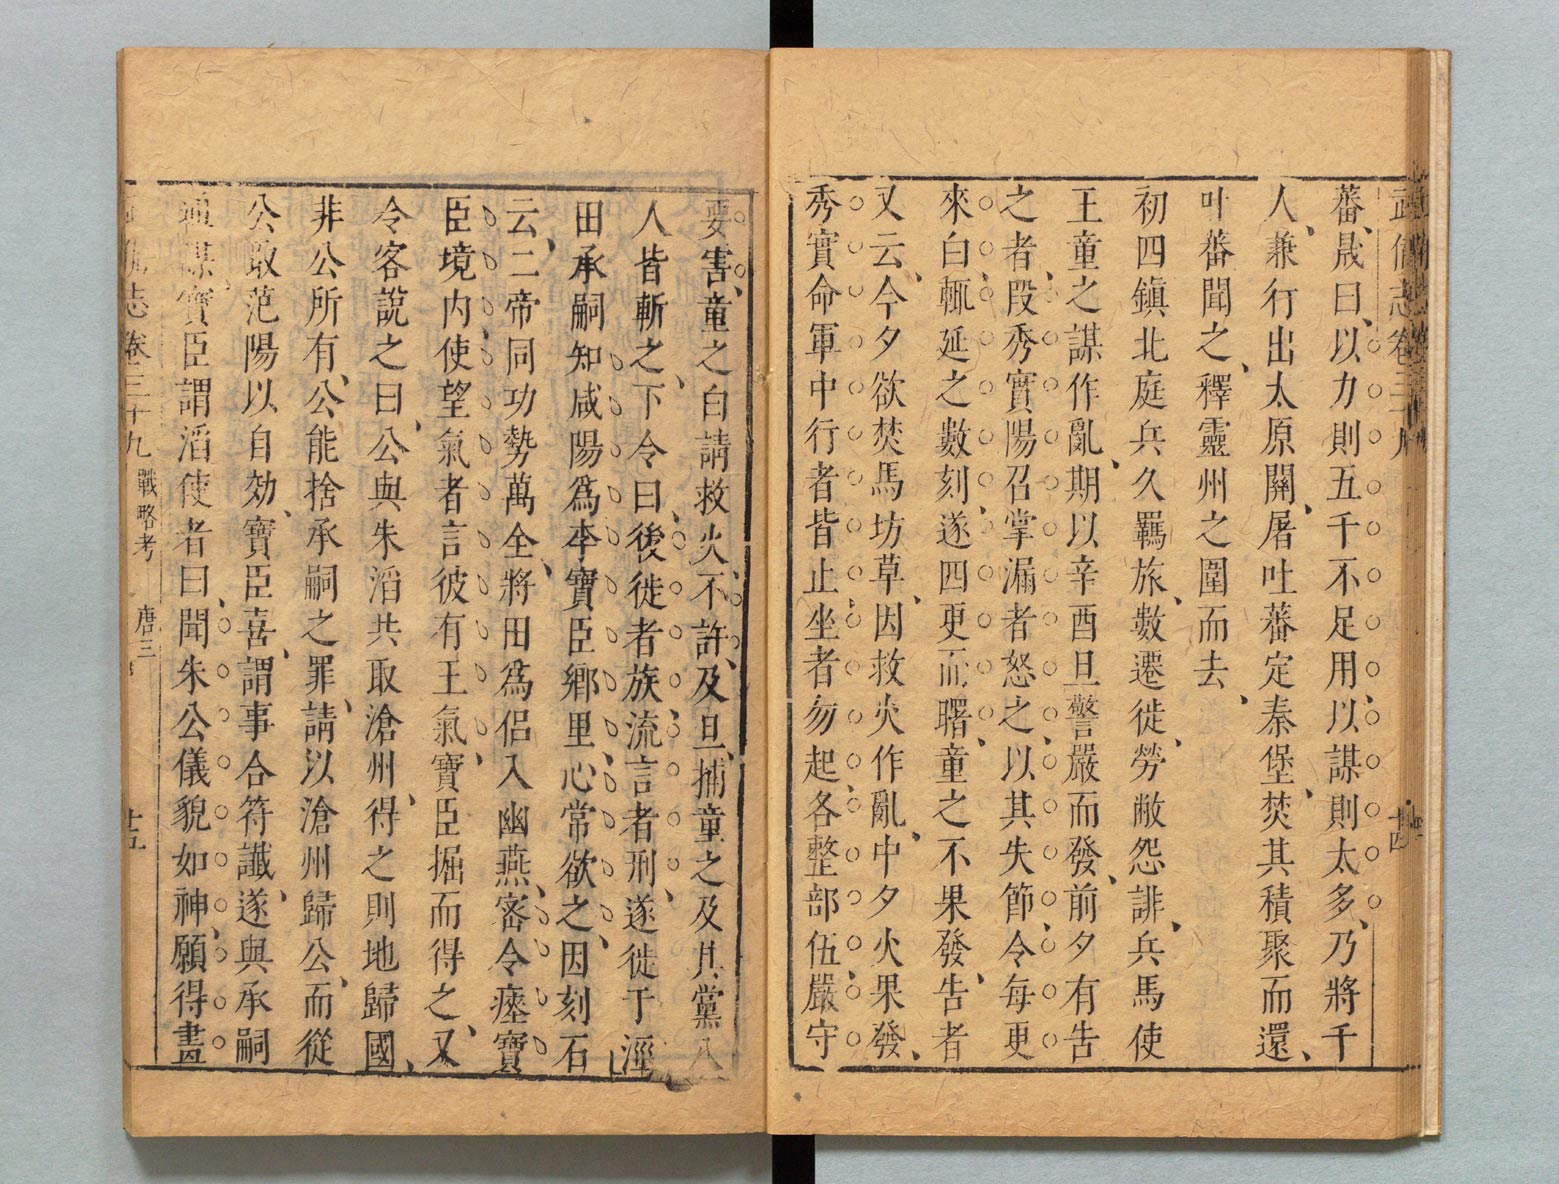 武備志卷三十九
十四
蕃晟曰以力則五千不足用以謀則太多乃將千
人兼行出太原關屠吐蕃定秦堡焚其積聚而還
叶蕃聞之釋靈州之圍而去
初四鎮北庭兵久羈旅數遷徙勞敝怨誹兵馬使
王童之謀作亂期以辛酉旦警嚴而發前夕有告
之者段秀實陽召掌漏者怒之以其失節令每更
來白輒延之數刻遂四更而曙童之不果發告者
又云今夕欲焚馬坊草因救火作亂中夕火果發
秀實命軍中行者皆止坐者勿起各整部伍嚴守
要害童之白請救火不許及旦捕童之及其黨八
人皆斬之下令曰後徙者族流言者刑遂徙于涇
田承嗣知咸陽爲李寶臣鄉里心常欲之因刻石
云二帝同功勢萬全將田爲侶入幽燕密令瘞寶
臣境内使望氣者言彼有王氣寶臣掘而得之又
令客說之曰公與朱滔共取滄州得之則地歸國
非公所有公能捨承嗣之罪請以滄州歸公而從
公取范陽以自効寶臣喜謂事合符讖遂與承嗣
通謀寶臣謂滔使者曰聞朱公儀貌如神願得畫
志卷三十九 戰略考 唐三
十五